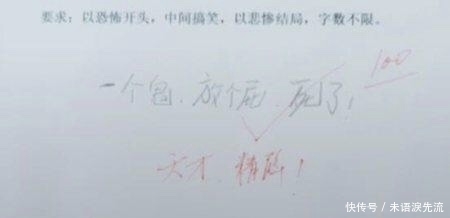 要求：以恐怖开头，中间搞笑，以悲惨结局，字数不限。
100
一个鬼.放个屁.死了!
天才.精辟!
快传号/未语淚先流